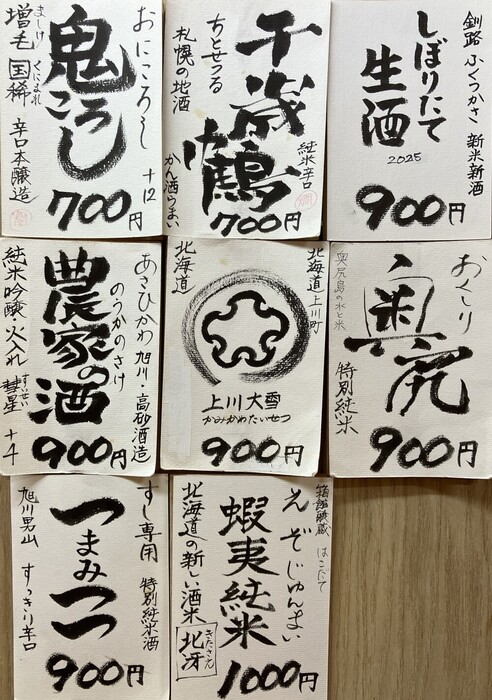 おにころし +12
鬼ころし
ましけ くにまれ
増毛 国稀 辛口本醸造
700円
純米辛口
千歳鶴
ちとせつる
札幌の地酒
かん酒うまい
700円
釧路 ふくつかさ 新米新酒
しぼりたて
生酒
2025
900円
あさひかわ 旭川・高砂酒造
のうかのさけ
農家の酒
純米吟醸・火入れ すいせい 彗星 +4
900円
北海道上川町
北海道
上川大雪
かみかわたいせつ
900円
おくしり
奥尻
奥尻島の水と米
特別純米
900円
すし専用 特別純米酒
つまみつつ
旭川男山 すっきり辛口
900円
箱館醸蔵 はこだて
えぞじゅんまい
蝦夷純米
北海道の新しい酒米 きたさえ 北冴
1000円